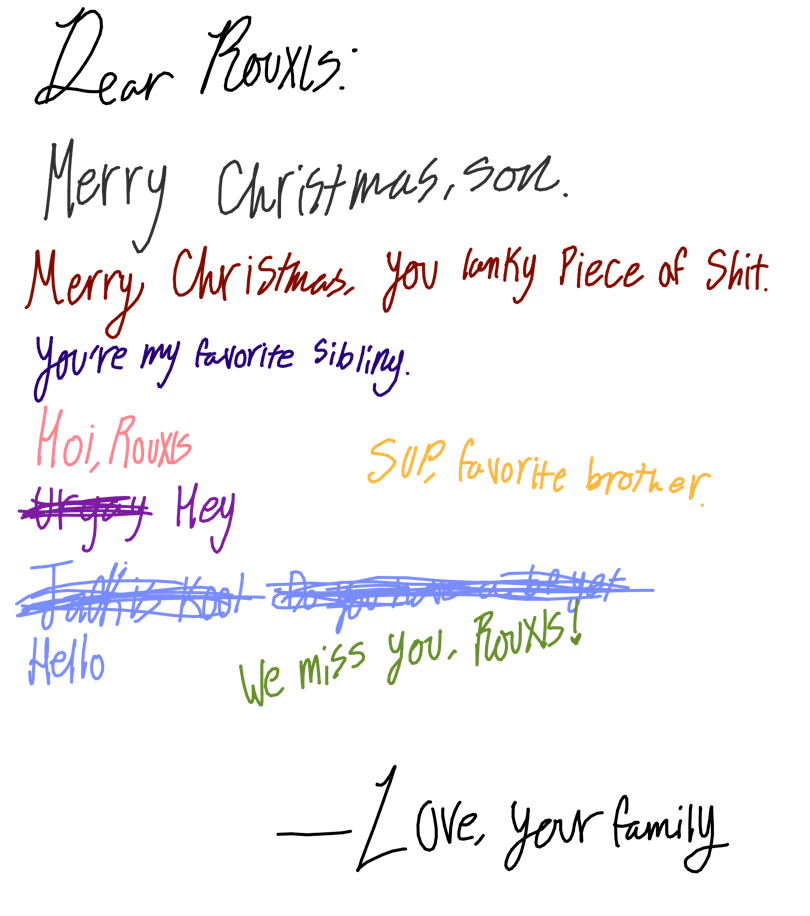 Dear Rouxls:
Merry Christmas, son.
Merry Christmas, you lanky Piece of Shit.
You're my favorite sibling.
Hoi, Rouxls
Sup, favorite brother.
Ur gay Hey
is Kool Do you have a bf yet
Hello
We miss you, Rouxls!
—Love, your family